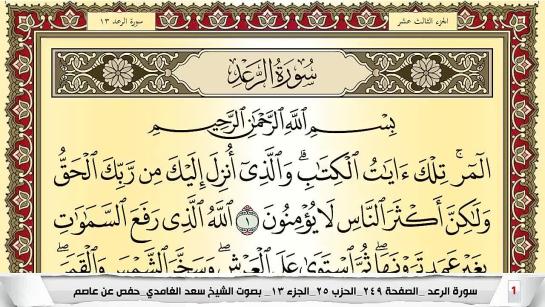 سورة الرعد ١٣
الجزء الثالث عشر
سُورَةُ الرَّعْدِ
بِسْمِ اللَّهِ الرَّحْمَٰنِ الرَّحِيمِ
الٓمٓر ۚ تِلْكَ ءَايَٰتُ الْكِتَٰبِ ۗ وَالَّذِىٓ أُنزِلَ إِلَيْكَ مِن رَّبِّكَ الْحَقُّ
وَلَٰكِنَّ أَكْثَرَ النَّاسِ لَا يُؤْمِنُونَ ١ اللَّهُ الَّذِى رَفَعَ السَّمَٰوَٰتِ
بِغَيْرِ عَمَدٍ تَرَوْنَهَا ۖ ثُمَّ اسْتَوَىٰ عَلَى الْعَرْشِ ۖ وَسَخَّرَ الشَّمْسَ وَالْقَمَرَ ۖ
1 سورة الرعد _ الصفحة ٢٤٩_ الحزب ٢٥_ الجزء ١٣ _ بصوت الشيخ سعد الغامدي_ حفص عن عاصم